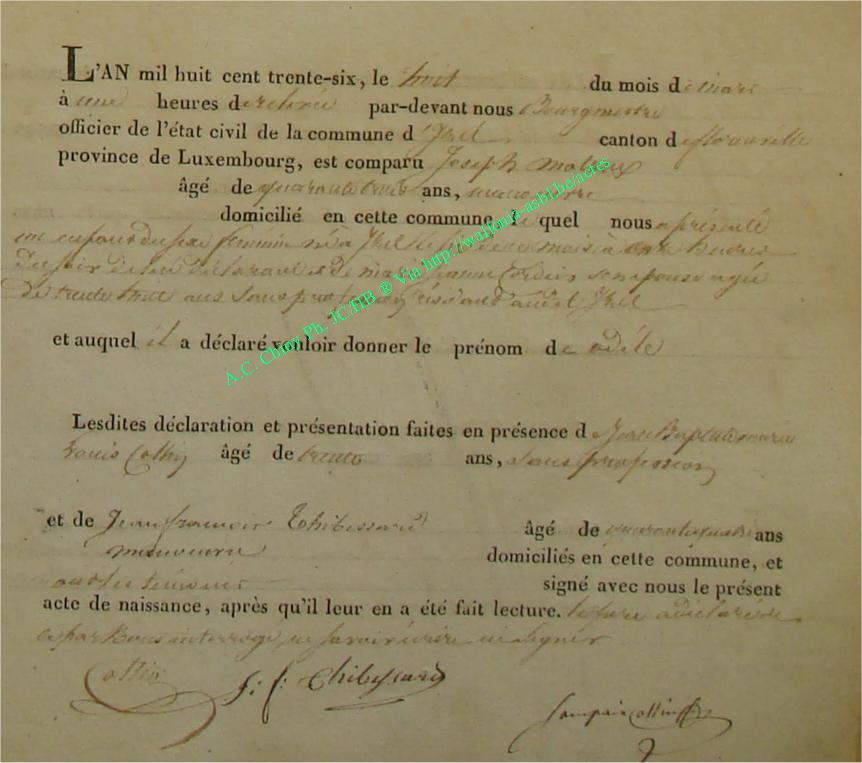 L'AN mil huit cent trente-six, le huit du mois de mars
à une heures de relevée par-devant nous Bourgmestre
officier de l'état civil de la commune d'Izel canton de florenville
province de Luxembourg, est comparu Joseph
âgé de quarante trois ans, manoeuvre
domicilié en cette commune, le quel nous a présenté
un enfant du sexe féminin né a Izel le sept de ce mois à onze heures
du soir de lui déclarant et de marie jeanne son épouse agée
de trente huit ans sans profession, résidant audit Izel
et auquel il a déclaré vouloir donner le prénom de odile
Lesdites déclaration et présentation faites en présence de Jean Baptiste marie
Louis âgé de trente ans, sans profession
et de Jean francois Thibessard âgé de quarante quatre ans
manoeuvre domiciliés en cette commune, et
signé avec nous le présent
acte de naissance, après qu'il leur en a été fait lecture. le pere a déclaré de
ce par Nous interrogé, ne savoir écrire ni signer
J: f: Thibessard
A.C. Chiny Ph. JC.HB ® Via http://wallonia-asbl.be/actes